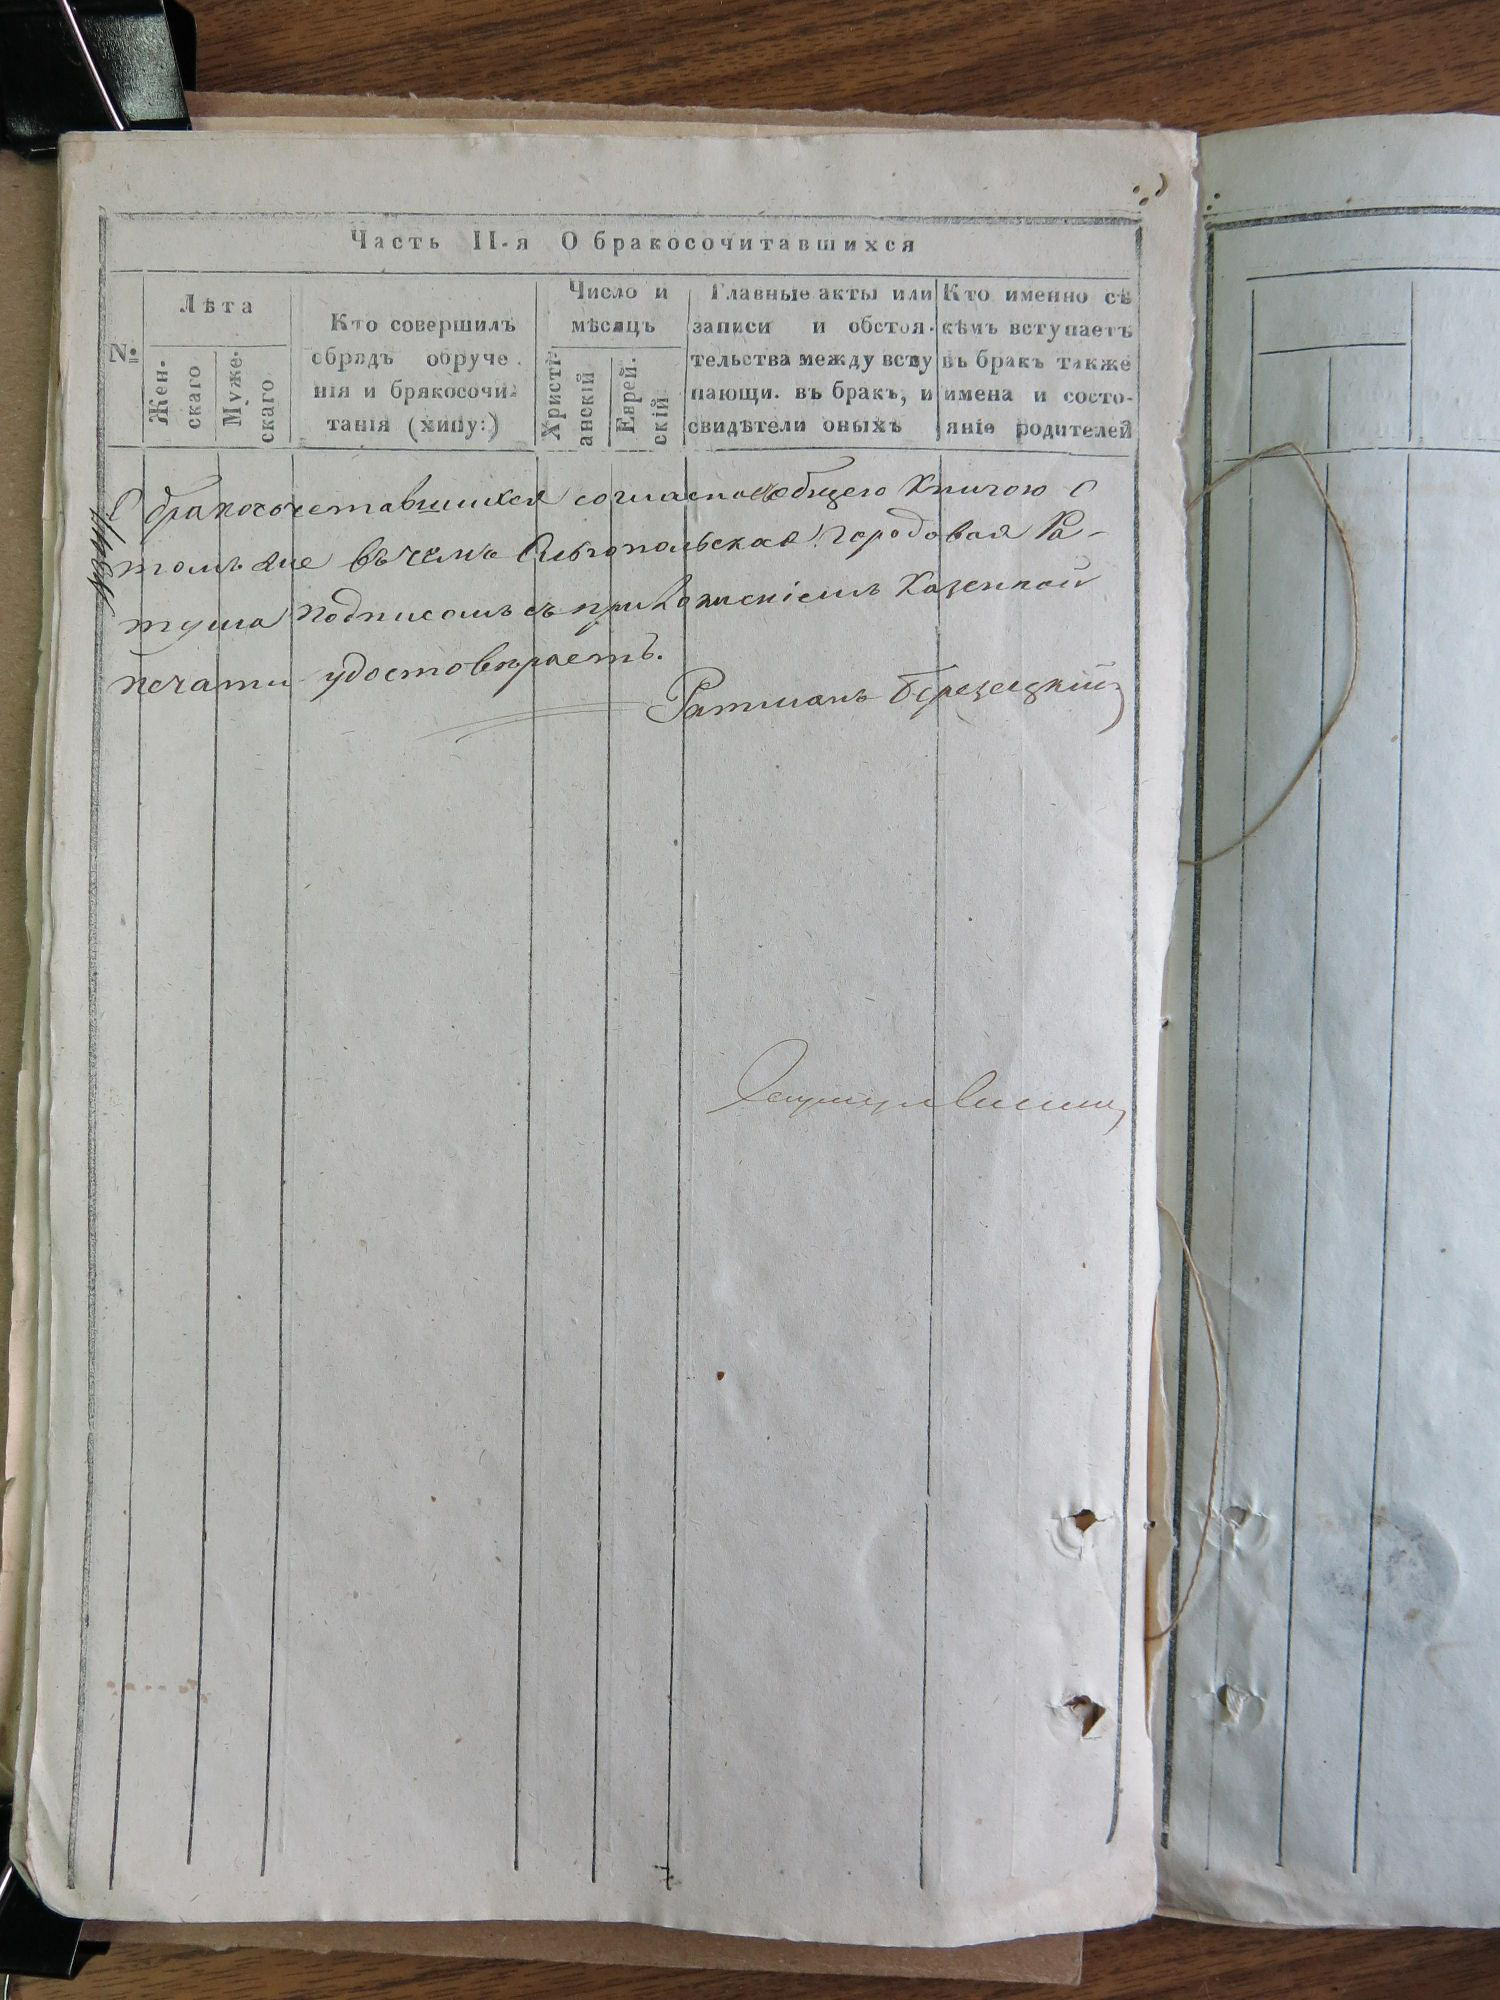 Часть II-я О бракосочитавшихся
№
Лѣта
Жен-
скаго
Муже-
скаго
Кто совершилъ
сбрядъ обруче
нія и брякосочи-
танія (хипу:)
Число и
мѣсяцъ
Христі-
анскій
Еврей-
скій
Главные акты или
записи и обстоя-
тельства между всту
пающи. въ бракъ, и
свидѣтели оныхъ
Кто именно съ
кѣмъ вступаетъ
въ бракъ также
имена и состо-
яніе родителей
О бракосочетавшихся согласно собщею Книгою о
томъ же въ чемъ Ольгопольская Городовая Ра-
туша подписомъ съ приложеніемъ Казенной
печати удостовѣряетъ.
Ратманъ